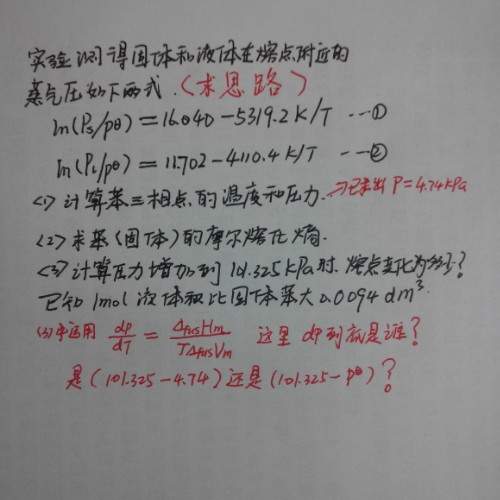 实验测得固体和液体在熔点附近的
蒸气压如下两式.(求思路)
ln(Ps/pθ)=16.040-5319.2K/T ---①
ln(Pl/pθ)=11.702-4110.4K/T ---②
<1>计算苯三相点的温度和压力. =>已求出 P=4.74kPa
<2>求苯(固体)的摩尔熔化熵.
<3>计算压力增加到101.325kPa时.熔点变化为?
已知1mol液体苯比固体苯大0.0094dm³.
(3)中运用 dp/dT = ΔfusHm/TΔfusVm 这里dp到底是谁?
是(101.325-4.74)还是(101.325-pθ)?